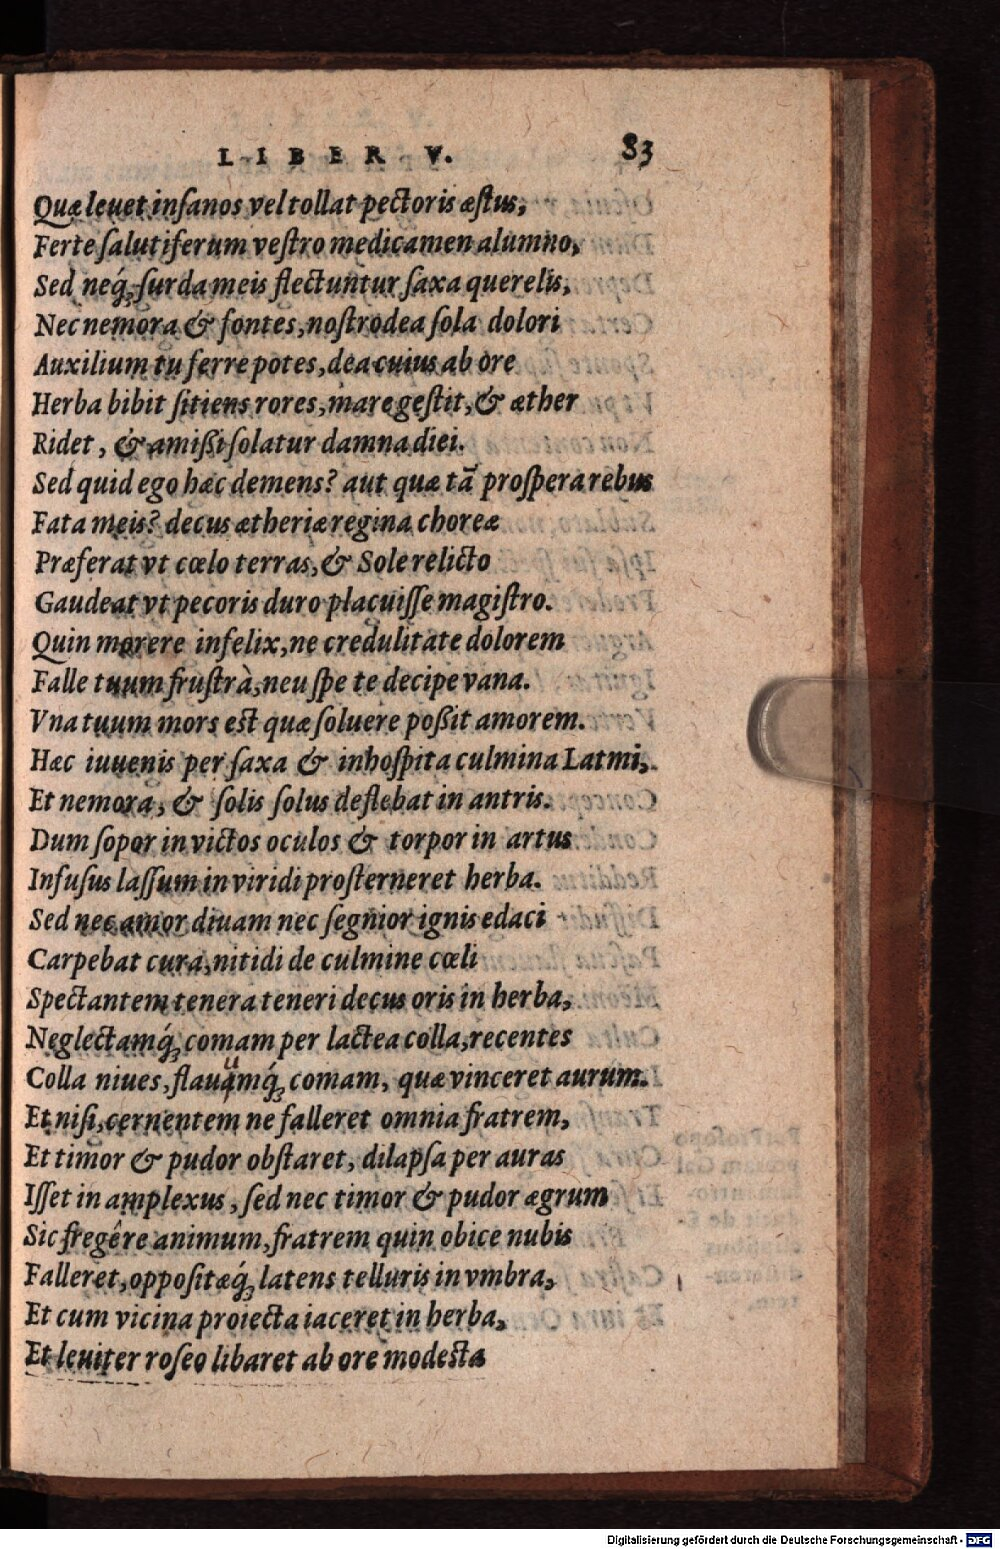 LIBER V. 83
Quæ leuet insanos vel tollat pectoris æstus,
Ferte salutiferum vestro medicamen alumno,
Sed neq́; surda meis flectuntur saxa querelis,
Nec nemora & fontes, nostro dea sola dolori
Auxilium tu ferre potes, dea cuius ab ore
Herba bibit sitiens rores, mare gestit, & æther
Ridet, & amißi solatur damna diei.
Sed quid ego hæc demens? aut quæ tā prospera rebus
Fata meis? decus ætheriæ regina choreæ
Præferat vt cœlo terras, & Sole relicto
Gaudeat vt pecoris duro placuisse magistro.
Quin morere infelix, ne credulitate dolorem
Falle tuum frustrà, neu spe te decipe vana.
Vna tuum mors est quæ soluere poßit amorem.
Hæc iuuenis per saxa & inhospita culmina Latmi,
Et nemora, & solis solus deflebat in antris.
Dum sopor in victos oculos & torpor in artus
Infusus lassum in viridi prosterneret herba.
Sed nec amor diuam nec segnior ignis edaci
Carpebat cura, nitidi de culmine cœli
Spectantem tenera teneri decus oris in herba,
Neglectamq́; comam per lactea colla, recentes
u
Colla niues, flauamq́; comam, quæ vinceret aurum.
Et nisi, cernentem ne falleret omnia fratrem,
Et timor & pudor obstaret, dilapsa per auras
Isset in amplexus, sed nec timor & pudor ægrum
Sic fregêre animum, fratrem quin obice nubis
Falleret, oppositæq́; latens telluris in vmbra,
Et cum vicina proiecta iaceret in herba,
Et leuiter roseo libaret ab ore modesta
Digitalisierung gefördert durch die Deutsche Forschungsgemeinschaft - DFG